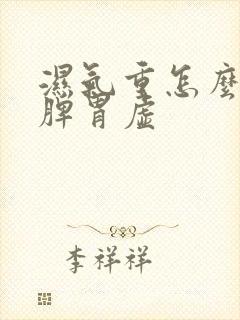 濕氣重怎麼
脾胃虛
李祥祥